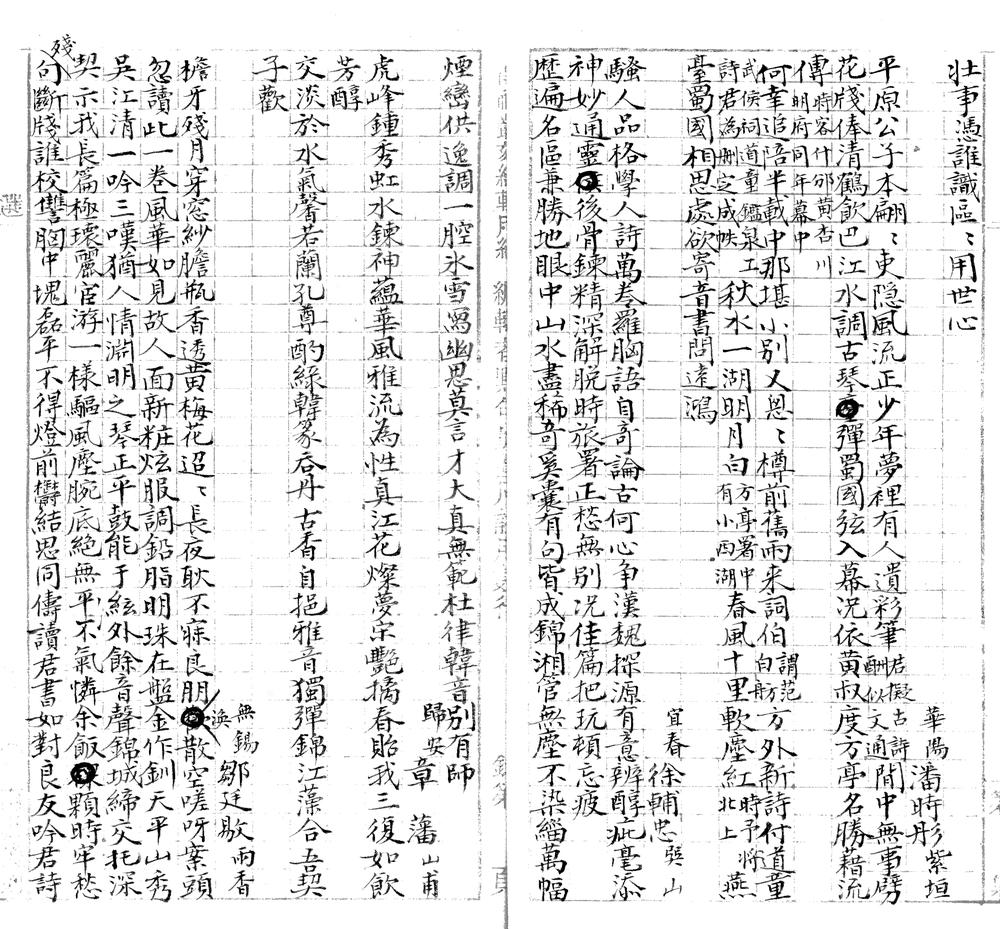 壯事憑誰識區〻用世心
華陽 潘時彤 紫垣
平原公子本翩〻吏隱風流正少年夢裡有人遺彩筆君擬古詩酬似文通閒中無事劈
花牋俸清鶴飲巴江水調古琴彈蜀國弦入幕況依黃叔度方亭名勝藉流
傳時客什邡黃杏川明府同年幕中
何幸追陪半載中那堪小別又悤〻樽前舊雨来詞伯謂范白舫方外新詩付道童
武侯祠道童鑑泉工詩君為刪定成帙秋水一湖明月白方亭署中有小西湖春風十里軟塵紅時予將北上燕
臺蜀國相思處欲寄音書問遠鴻
宜春 徐輔忠 巽山
騷人品格學人詩萬卷羅胸語自奇論古何心争漢魏探源有意辨醇疵毫添
神妙通靈後骨鍊精深解脱時旅署正愁無別况佳篇把玩頓忘疲
歷遍名區兼勝地眼中山水盡稀奇奚囊有句皆成錦湘管無塵不染緇萬幅
煙巒供逸調一腔氷雪寫幽思莫言才大真無範杜律韓音別有師
歸安 章藩 山甫
虎峰鍾秀虹水鍊神蘊華風雅流為性真江花燦夢宋艷摛春貽我三復如飲
芳醇
交淡於水氣馨若蘭孔尊酌綠韓篆吞丹古香自挹雅音獨彈錦江藻合吾契
子歡
無錫 鄒廷敭 雨香
檐牙殘月穿窓紗膽瓶香透黃梅花迢〻長夜耿不寐良朋渙散空嗟呀案頭
忽讀此一卷風華如見故人面新粧炫服調鉛脂明珠在盤金作釧天平山秀
吳江清一吟三嘆猶人情淵明之琴正平鼓能于絃外餘音聲錦城締交托深
契示我長篇極瓌麗宦游一樣驅風塵腕底絶無平不氣憐余飯顆時牢愁
殘句斷牋誰校讐胸中塊磊平不得燈前欝結思同儔讀君書如對良友吟君詩